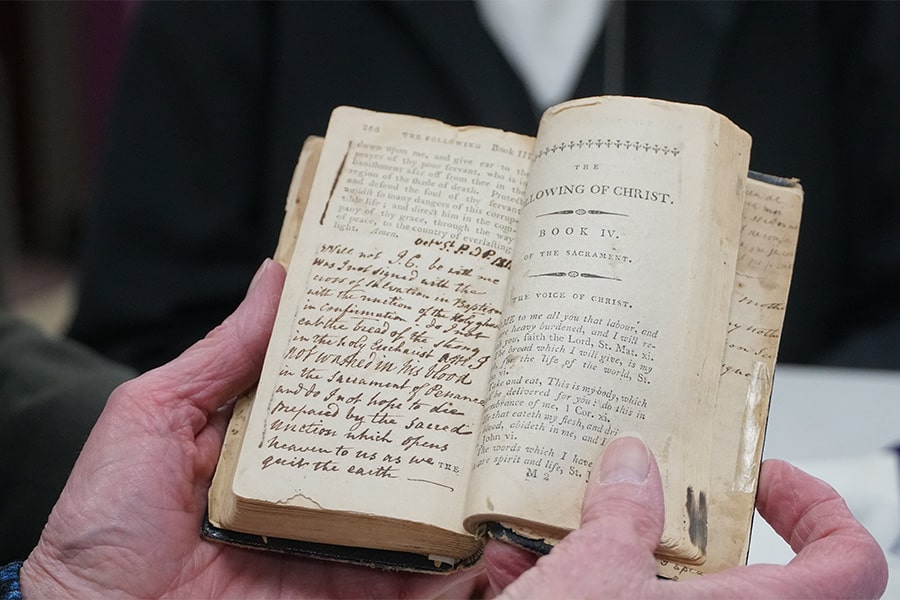 266 THE FOLLOWING Book III.
down upon me, and give ear to the
prayer of thy poor servant, who is in
banishment afar off from thee in the
region of the shade of death. Protect
and defend the soul of thy servant
amidst so many dangers of this corrup-
tible life; and direct him in the com-
pany of thy grace, through the way
of peace, to the country of everlasting
light. Amen.
Will not J.C. be with me
Was I not signed with the
cross of Salvation in Baptism
with the unction of the Holy ghost
in Confirmation? do I not
eat the bread of the strong
in the holy Eucharist am I
not washed in his blood
in the Sacrament of Penance
and do I not hope to die
prepared by the sacred
unction which opens
heaven to us as we
quit the earth
THE
THE
LLOWING OF CHRIST.
BOOK IV.
OF THE SACRAMENT.
THE VOICE OF CHRIST.
ME to me all you that labour, and
re heavy burdened, and I will re-
you, saith the Lord, St. Mat. xi.
he bread which I will give, is my
for the life of the world, St.
vi.
Take and eat, This is my body, which
be delivered for you: do this in
embrance of me, 1 Cor. xi.
that eateth my flesh, and dri
blood, abideth in me, and I
John vi.
The words which I have
re spirit and life, St. J
M 2